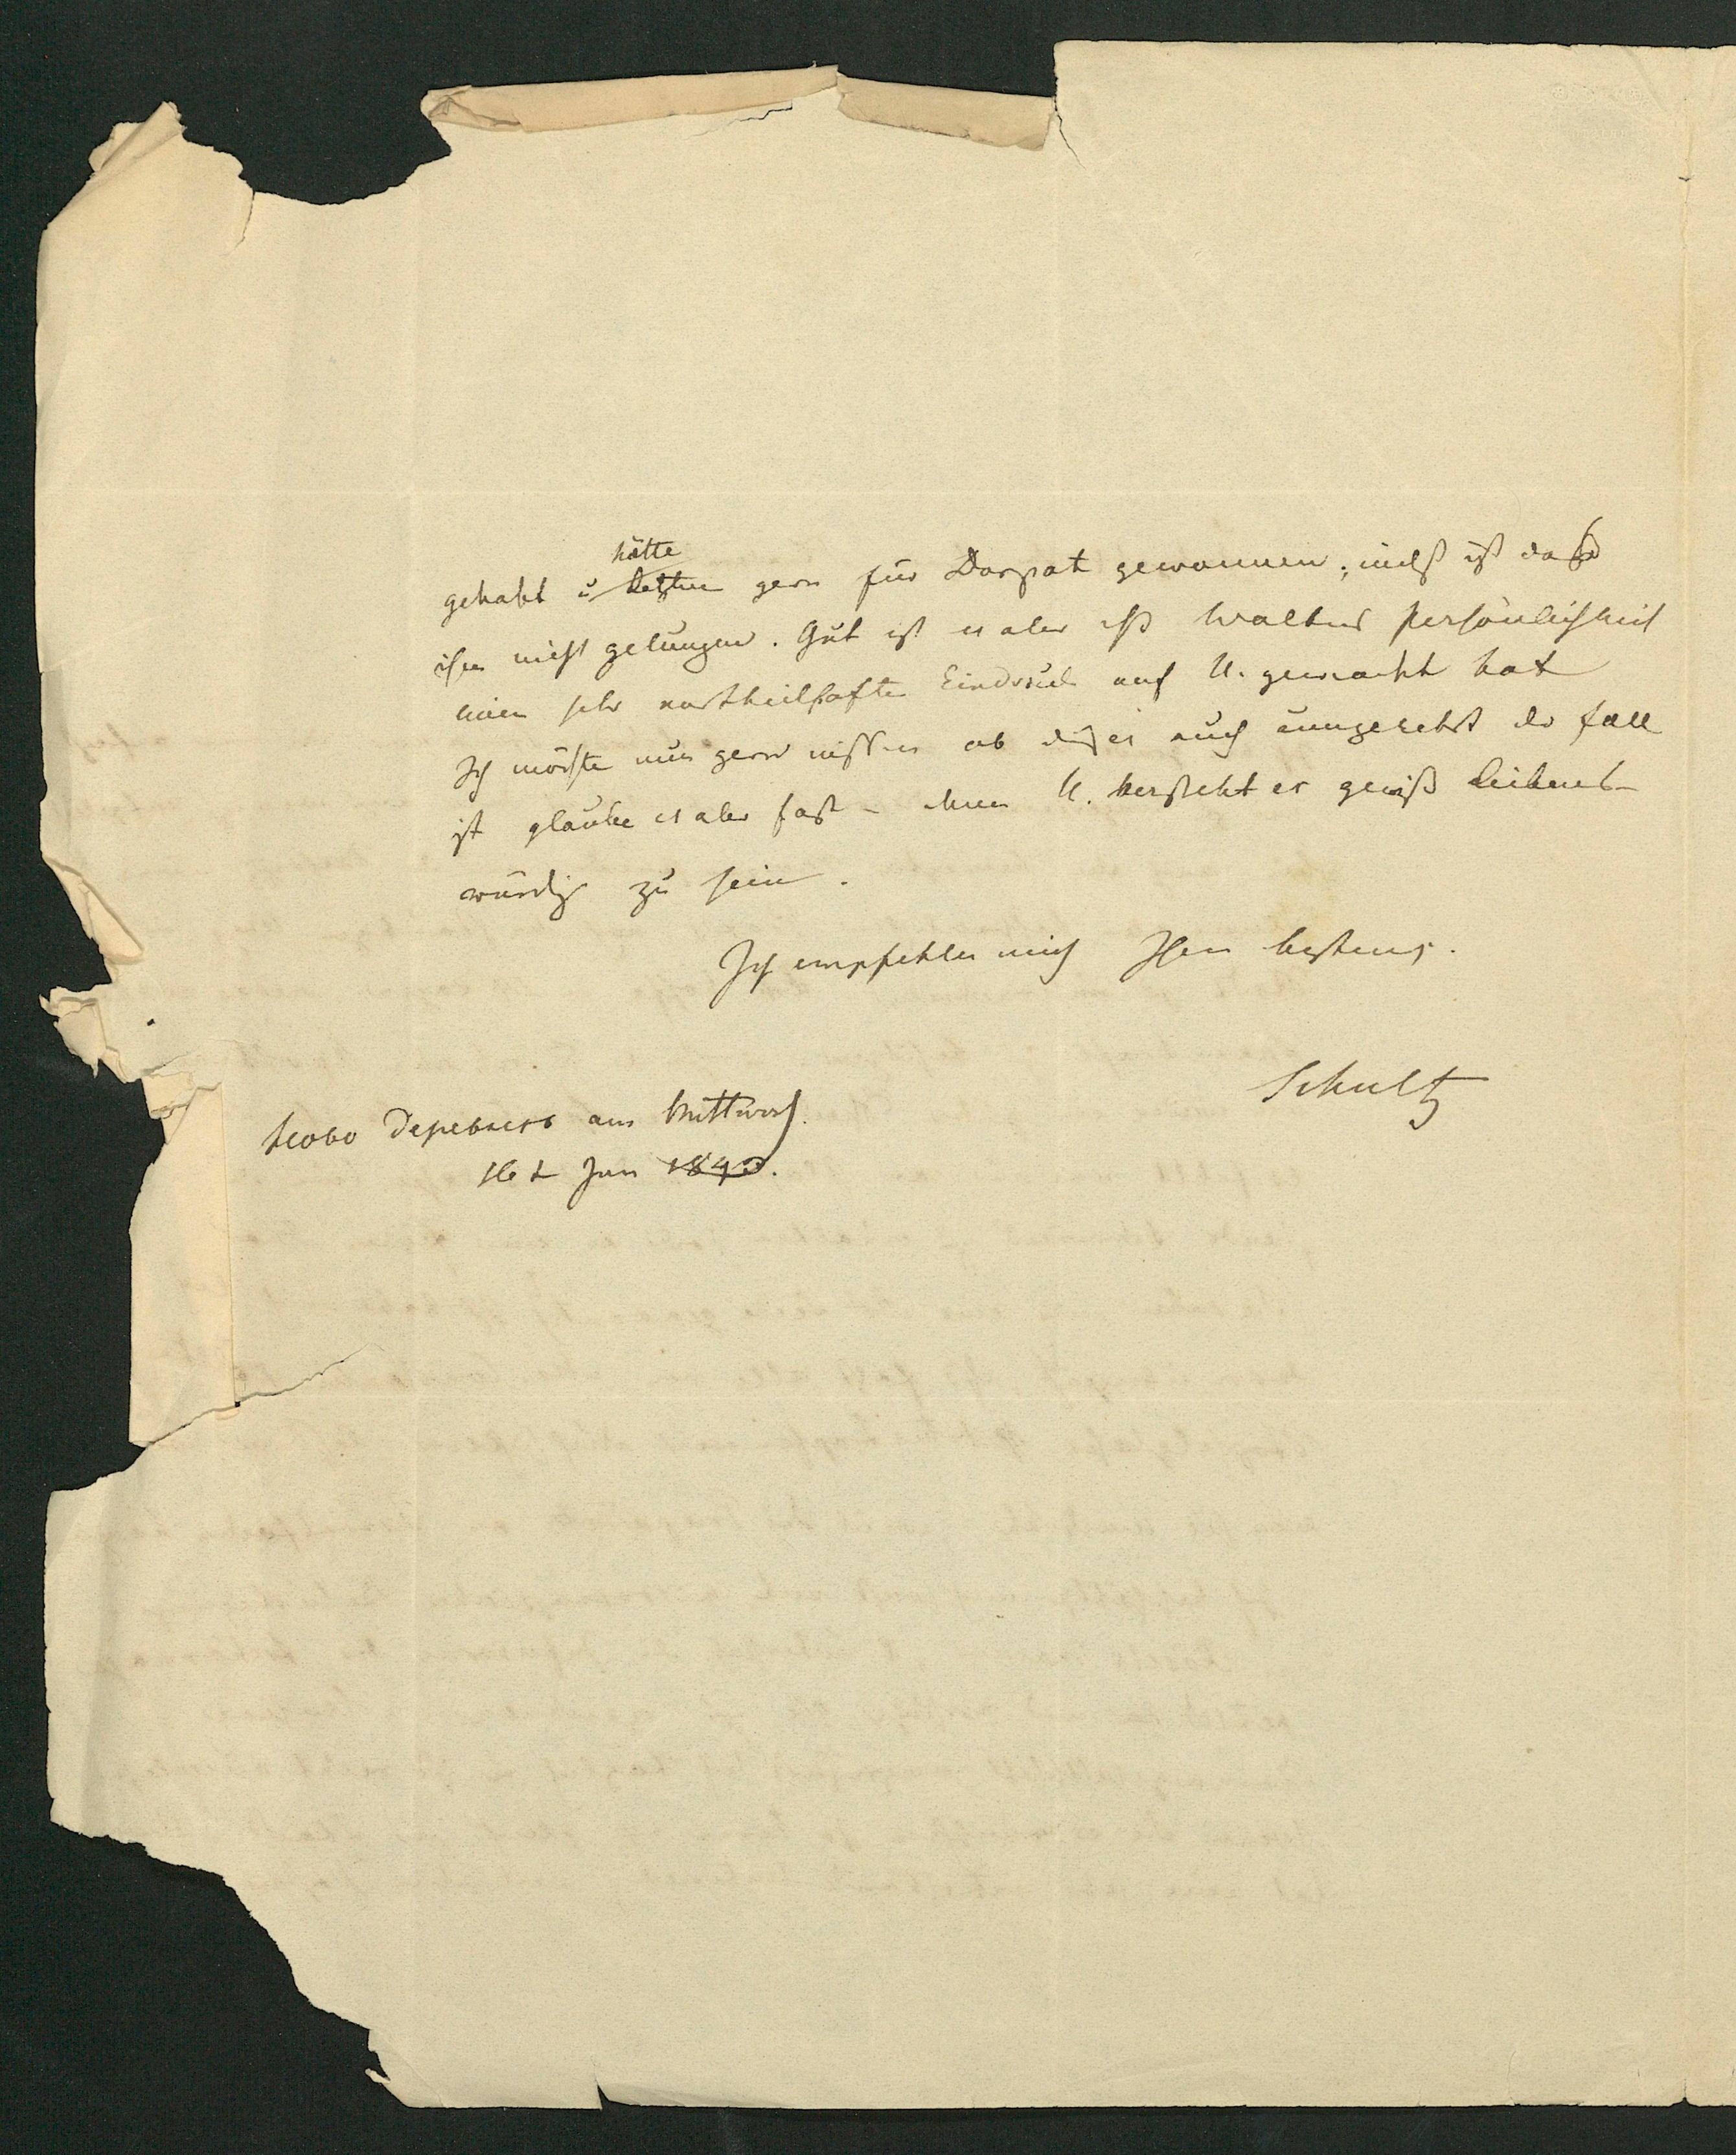 hätte
gehabt u letztern gern für Dorpat gewonnen; indeß ist das
ihm nicht gelungen. Gut ist es aber daß Walters Persönlichkeit
einen sehr vortheilhaften Eindruck auf U. gemacht hat
Ich möchte nun gern wissen ob dieses auch umgekehrt der Fall
ist glaube es aber fast – denn U. versteht es gewiß liebens-
würdig zu sein.
Ich empfehle mich Ihnen bestens.
Schultz
Ново Деревня am Mittwoch.
16 t Jun 1843.